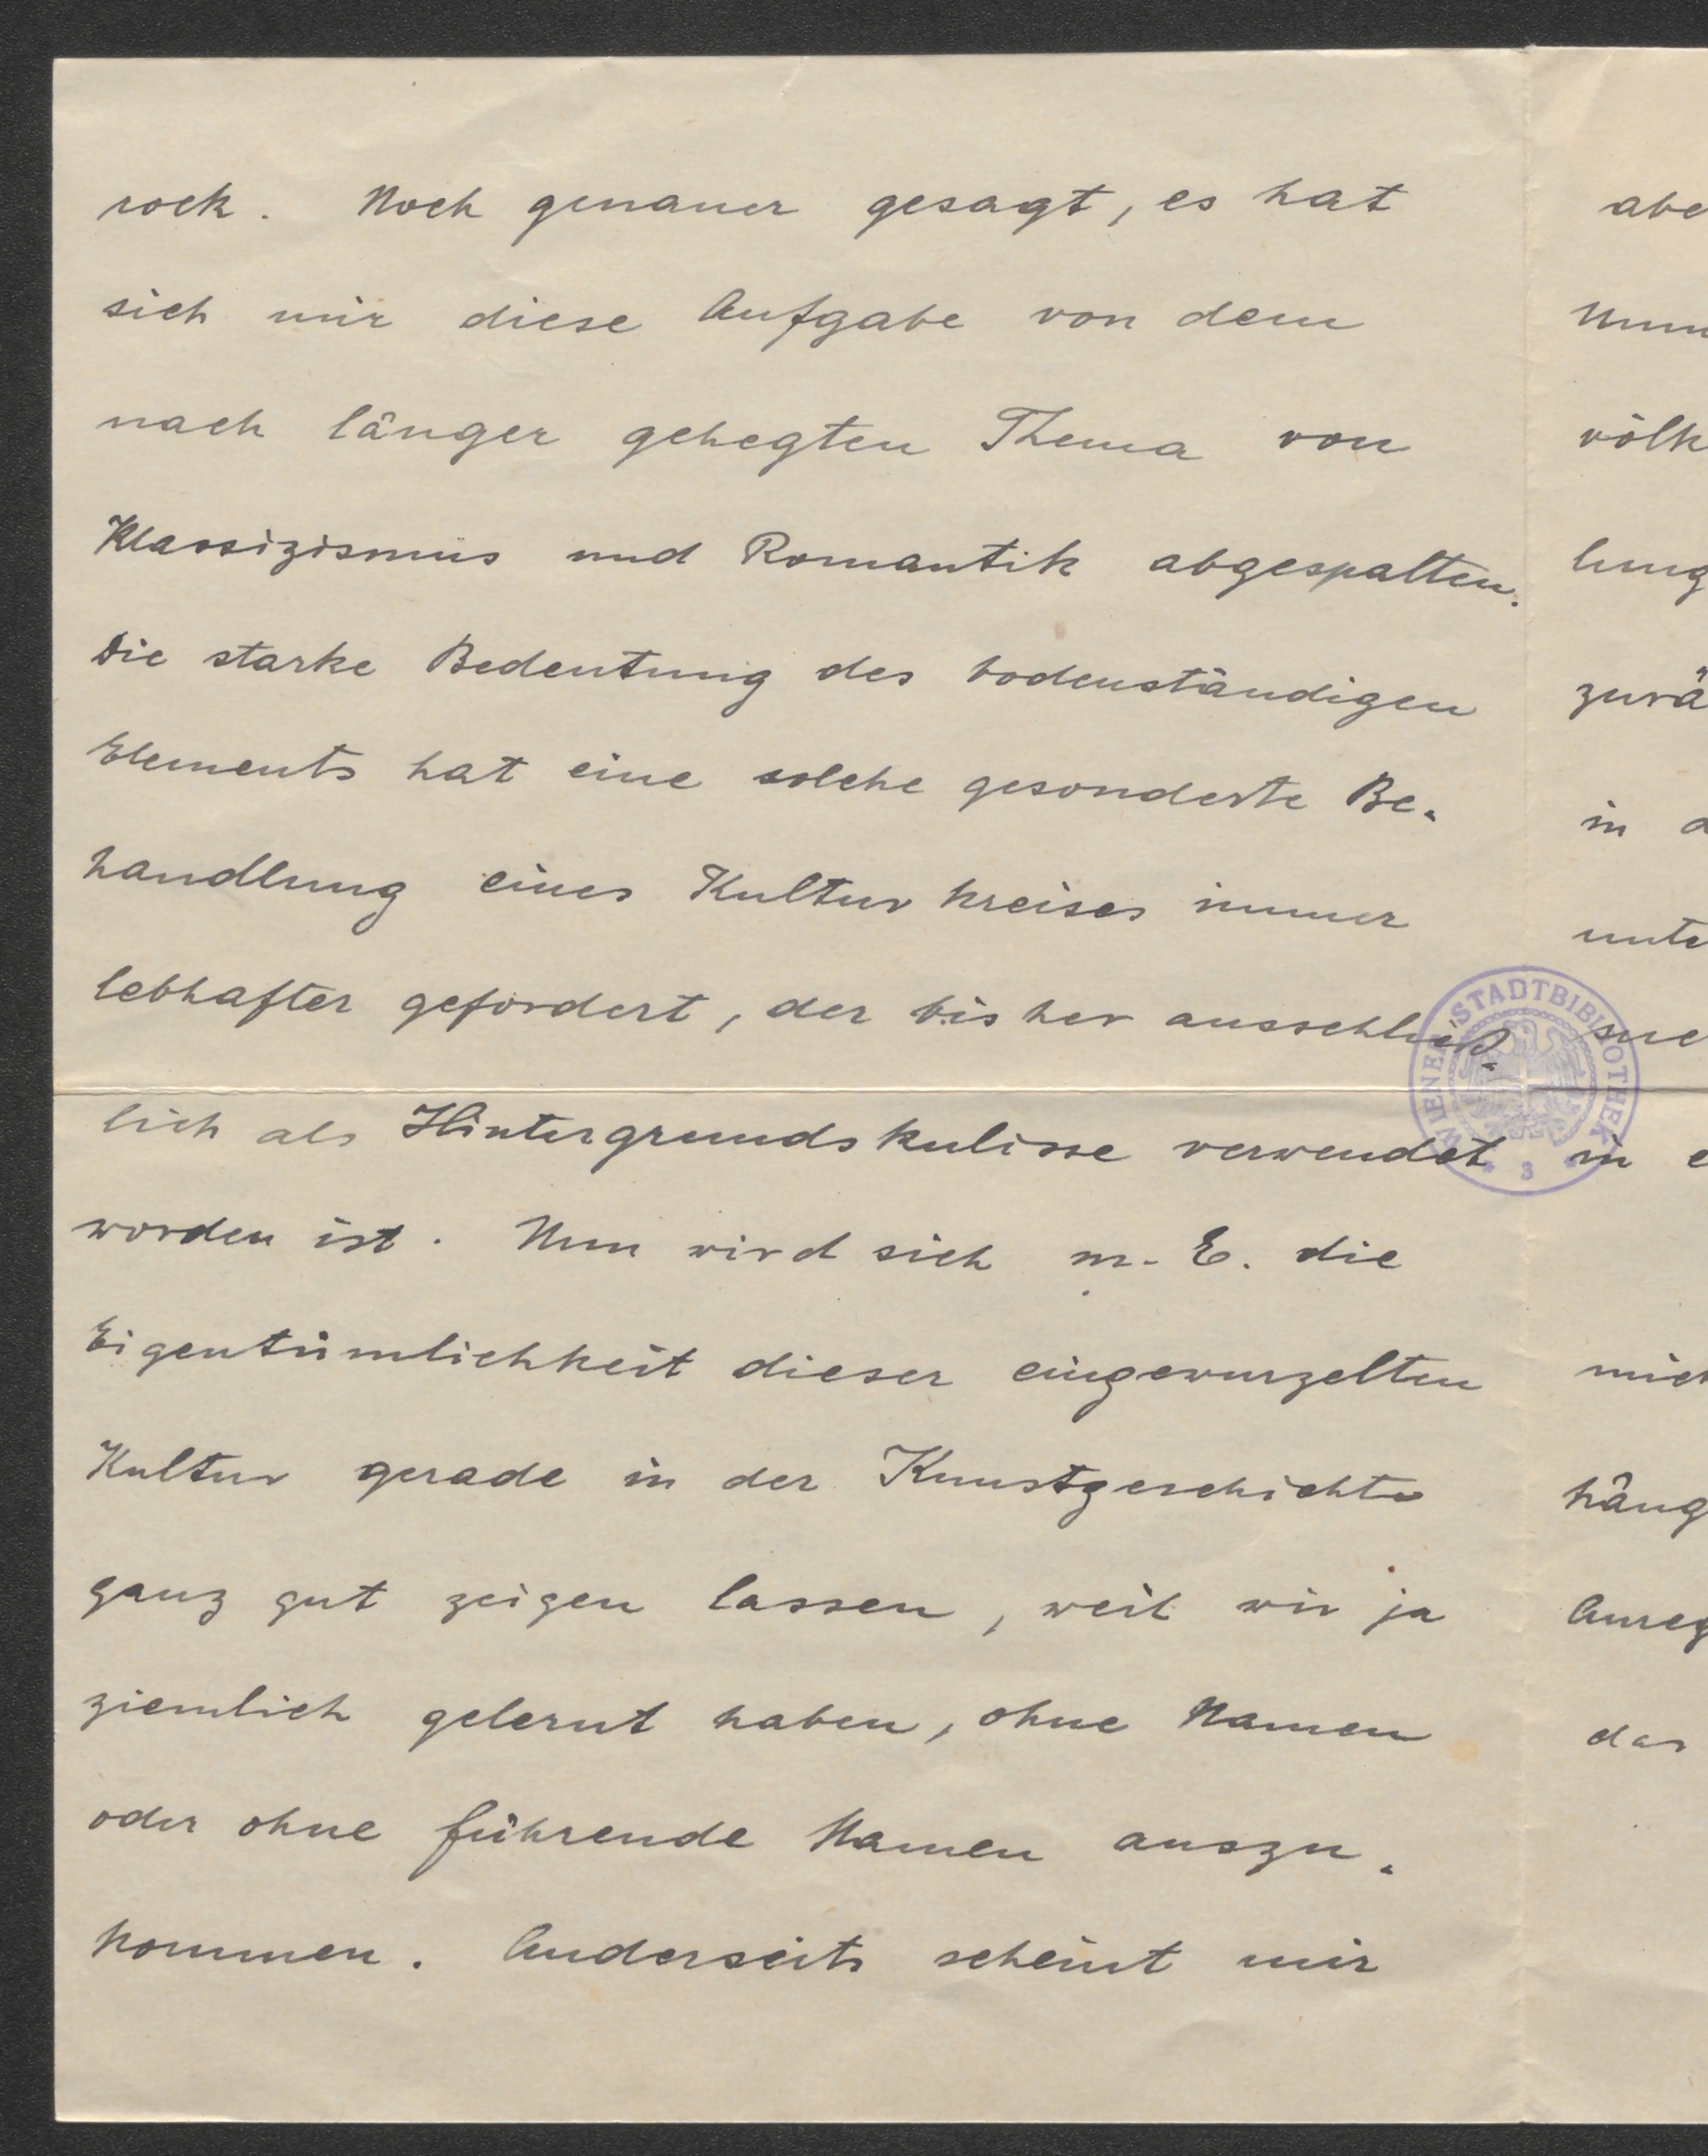 rock. Noch genauer gesagt, es hat
sich mir diese Aufgabe von dem
noch länger gehegten Thema von
Klassizismus und Romantik abgespalten.
Die starke Bedeutung des bodenständigen
Elements hat eine solche gesonderte Be-
handlung eines Kulturkreises immer
lebhafter gefordert, der bisher ausschließ-
lich als Hintergrundskulisse verwendet
worden ist. Nun wird sich m. E. die
Eigentümlichkeit dieser eingewurzelten
Kultur gerade in der Kunstgeschichte
ganz gut zeigen lassen, weil wir ja
ziemlich gelernt haben, ohne Namen
oder ohne führende Namen auszu-
kommen. Anderseits scheint mir
WIENER STADTBIBLIOTHEK
* 3 *
abe
völk
lung
zurü
in d
unte
in e
mich
häng
Anreg
das